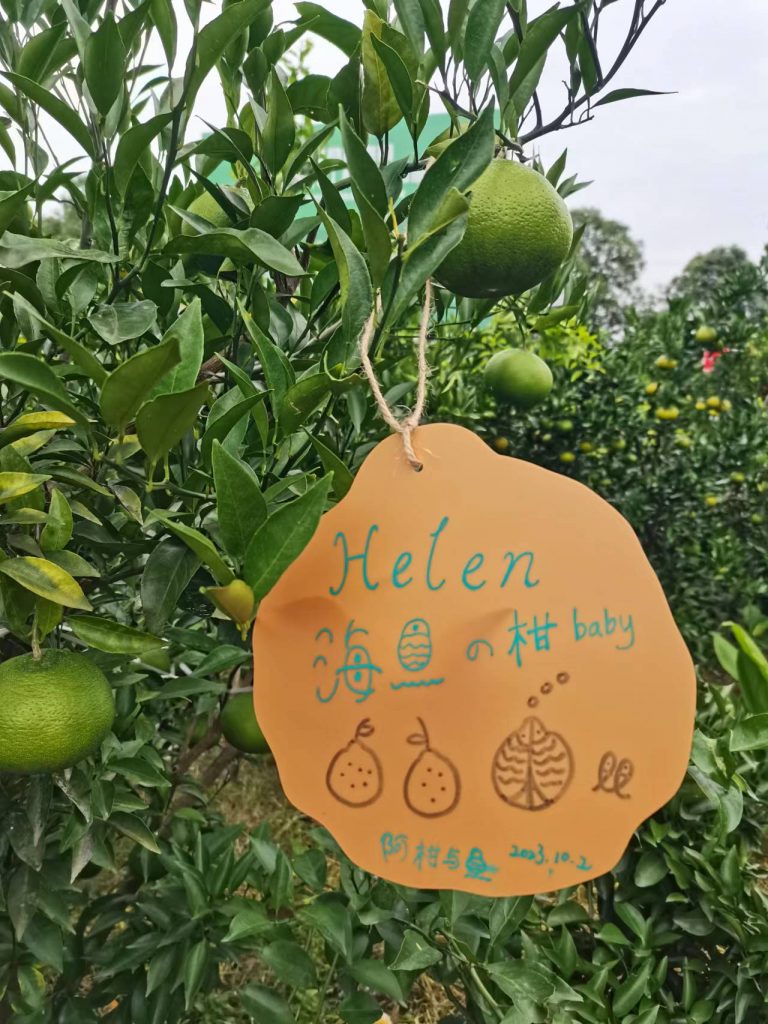 Helen
海鱼の柑baby
阿柑与鱼 2023.10.2